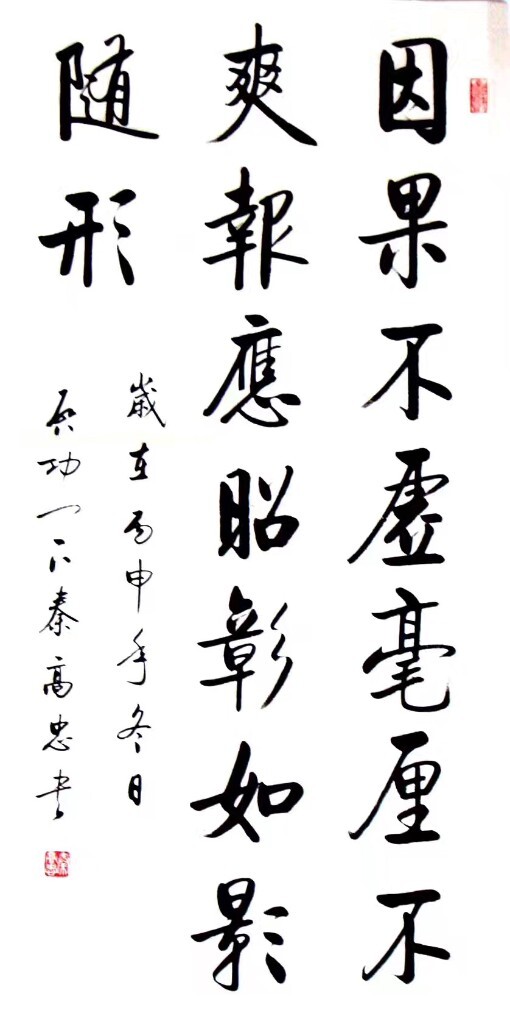 因果不虛毫厘不
爽報應昭彰如影
随形
歲在丙申年冬日
启功门下秦高忠书